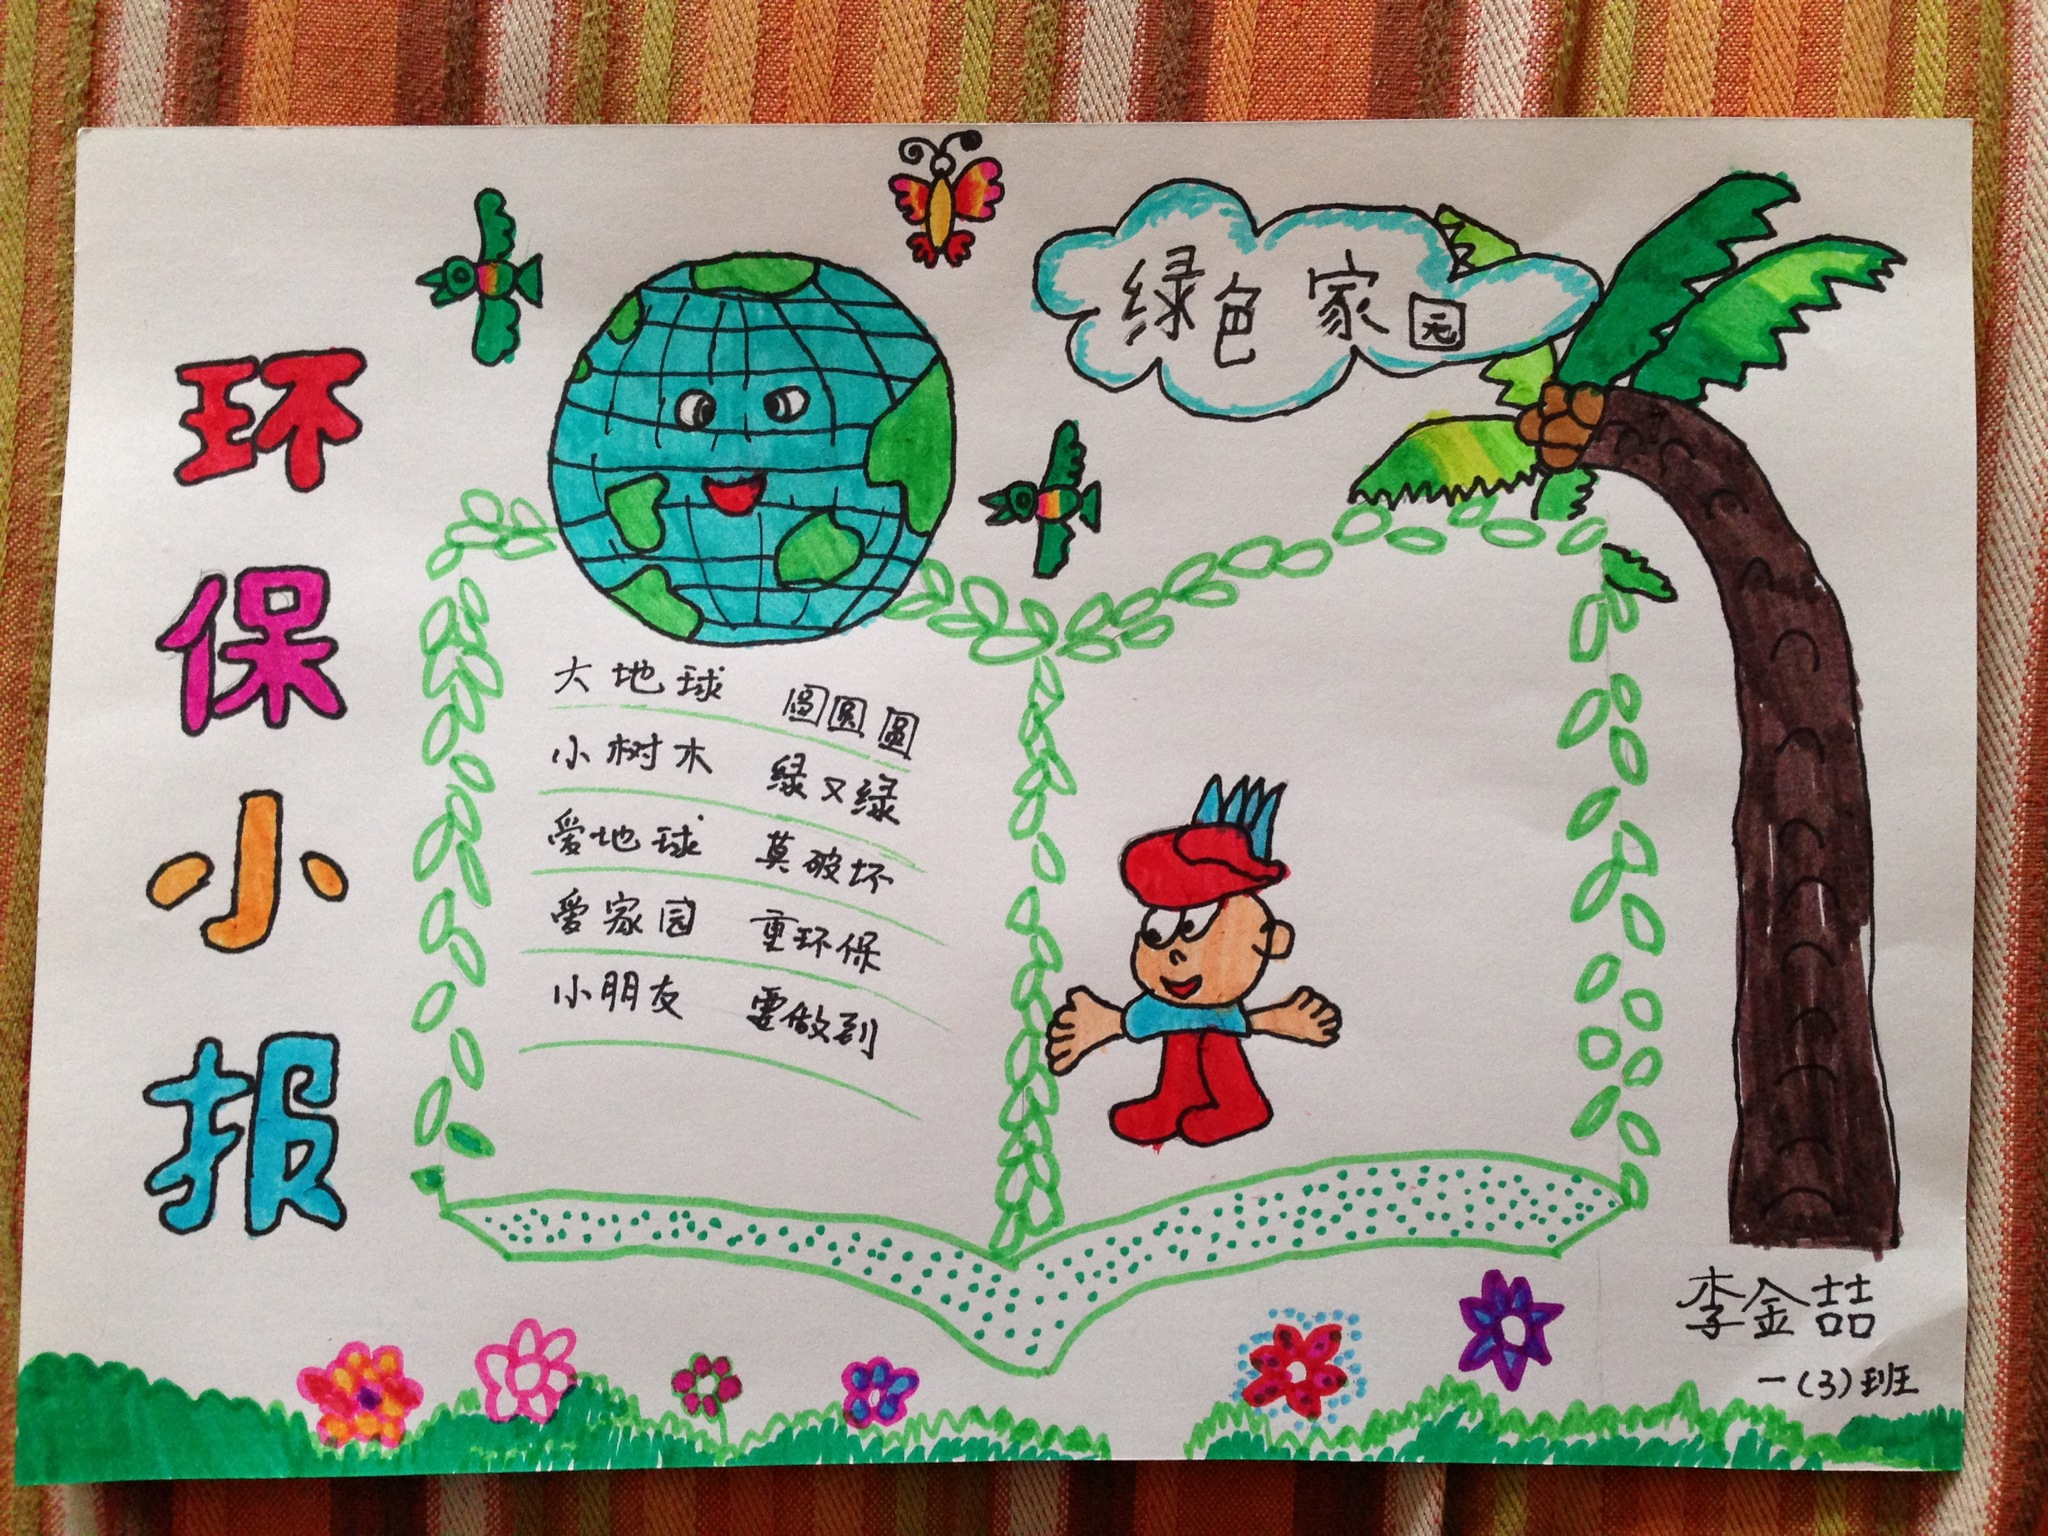 环保小报
绿色家园
大地球 圆圆圆
小树木 绿又绿
爱地球 莫破坏
爱家园 重环保
小朋友 要做到
李金喆
一(3)班